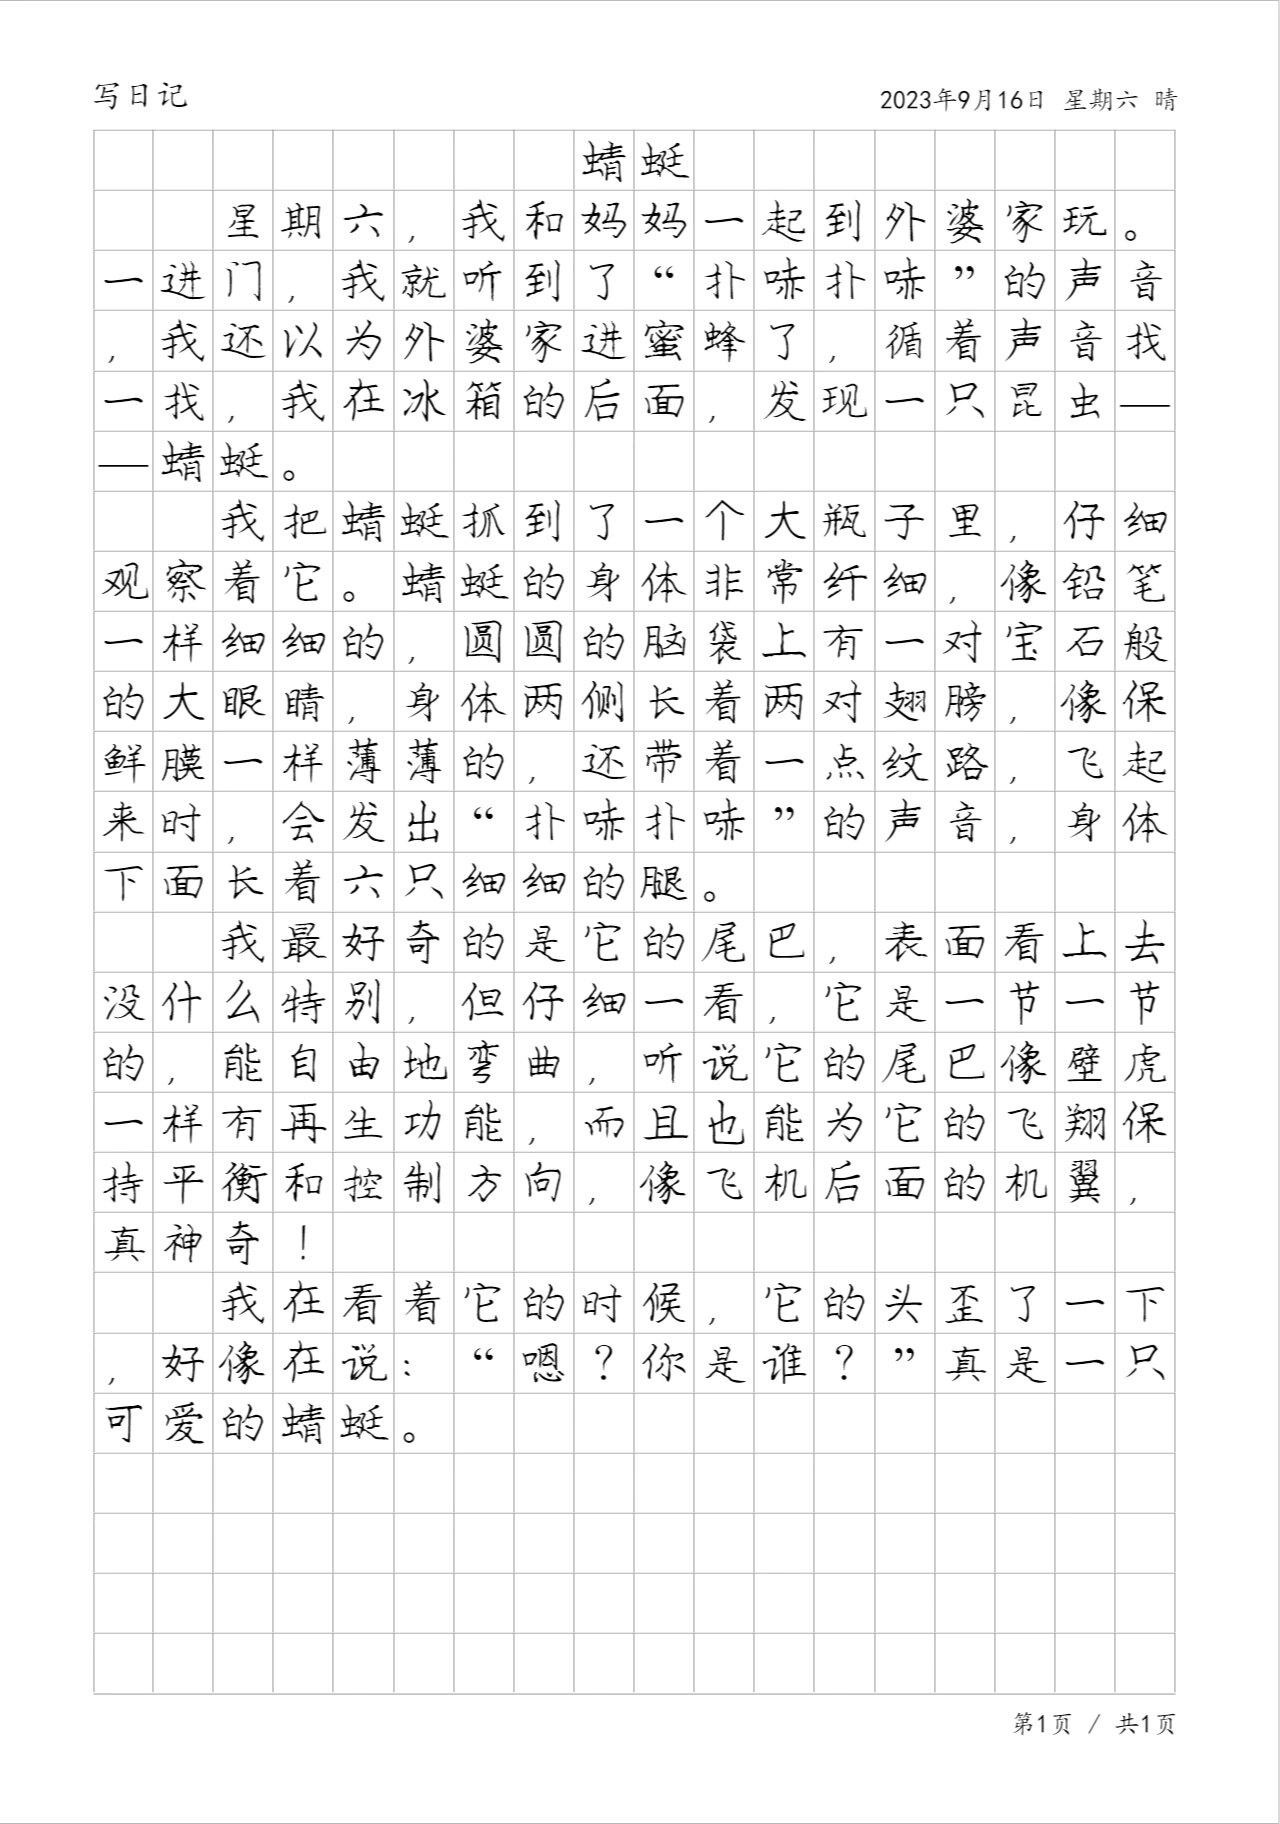 写日记
2023年9月16日 星期六 晴
蜻蜓
星期六，我和妈妈一起到外婆家玩。
一进门，我就听到了“扑哧扑哧”的声音
，我还以为外婆家进蜜蜂了，循着声音找
一找，我在冰箱的后面，发现一只昆虫—
—蜻蜓。
我把蜻蜓抓到了一个大瓶子里，仔细
观察着它。蜻蜓的身体非常纤细，像铅笔
一样细细的，圆圆的脑袋上有一对宝石般
的大眼睛，身体两侧长着两对翅膀，像保
鲜膜一样薄薄的，还带着一点纹路，飞起
来时，会发出“扑哧扑哧”的声音，身体
下面长着六只细细的腿。
我最好奇的是它的尾巴，表面看上去
没什么特别，但仔细一看，它是一节一节
的，能自由地弯曲，听说它的尾巴像壁虎
一样有再生功能，而且也能为它的飞翔保
持平衡和控制方向，像飞机后面的机翼，
真神奇！
我在看着它的时候，它的头歪了一下
，好像在说：“嗯？你是谁？”真是一只
可爱的蜻蜓。
第1页 / 共1页